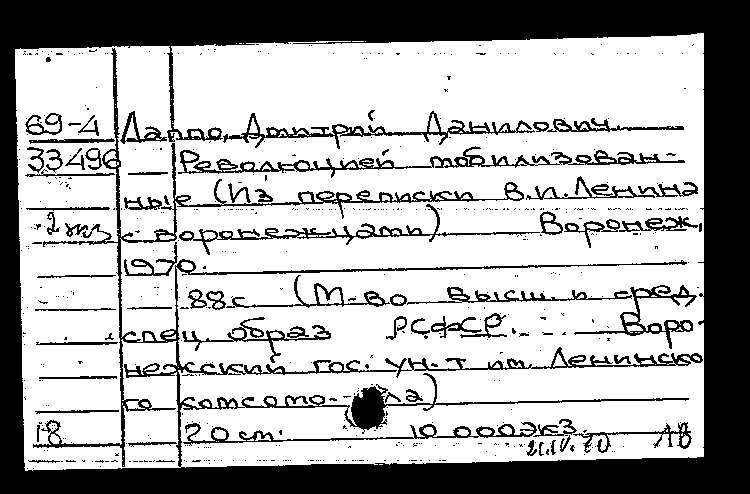 69-4 Лаппо, Дмитрий Данилович.
33496 Революцией мобилизован-
ные (Из переписки В.И. Ленина
2 экз с воронежцами) Воронеж,
1970.
88 с. (М-во высш. и сред.
спец. образ РСФСР. Воро-
нежский гос. ун-т им. Ленинско
го комсомола)
18 20 см. 10 000 экз.
21.IV.70 АВ